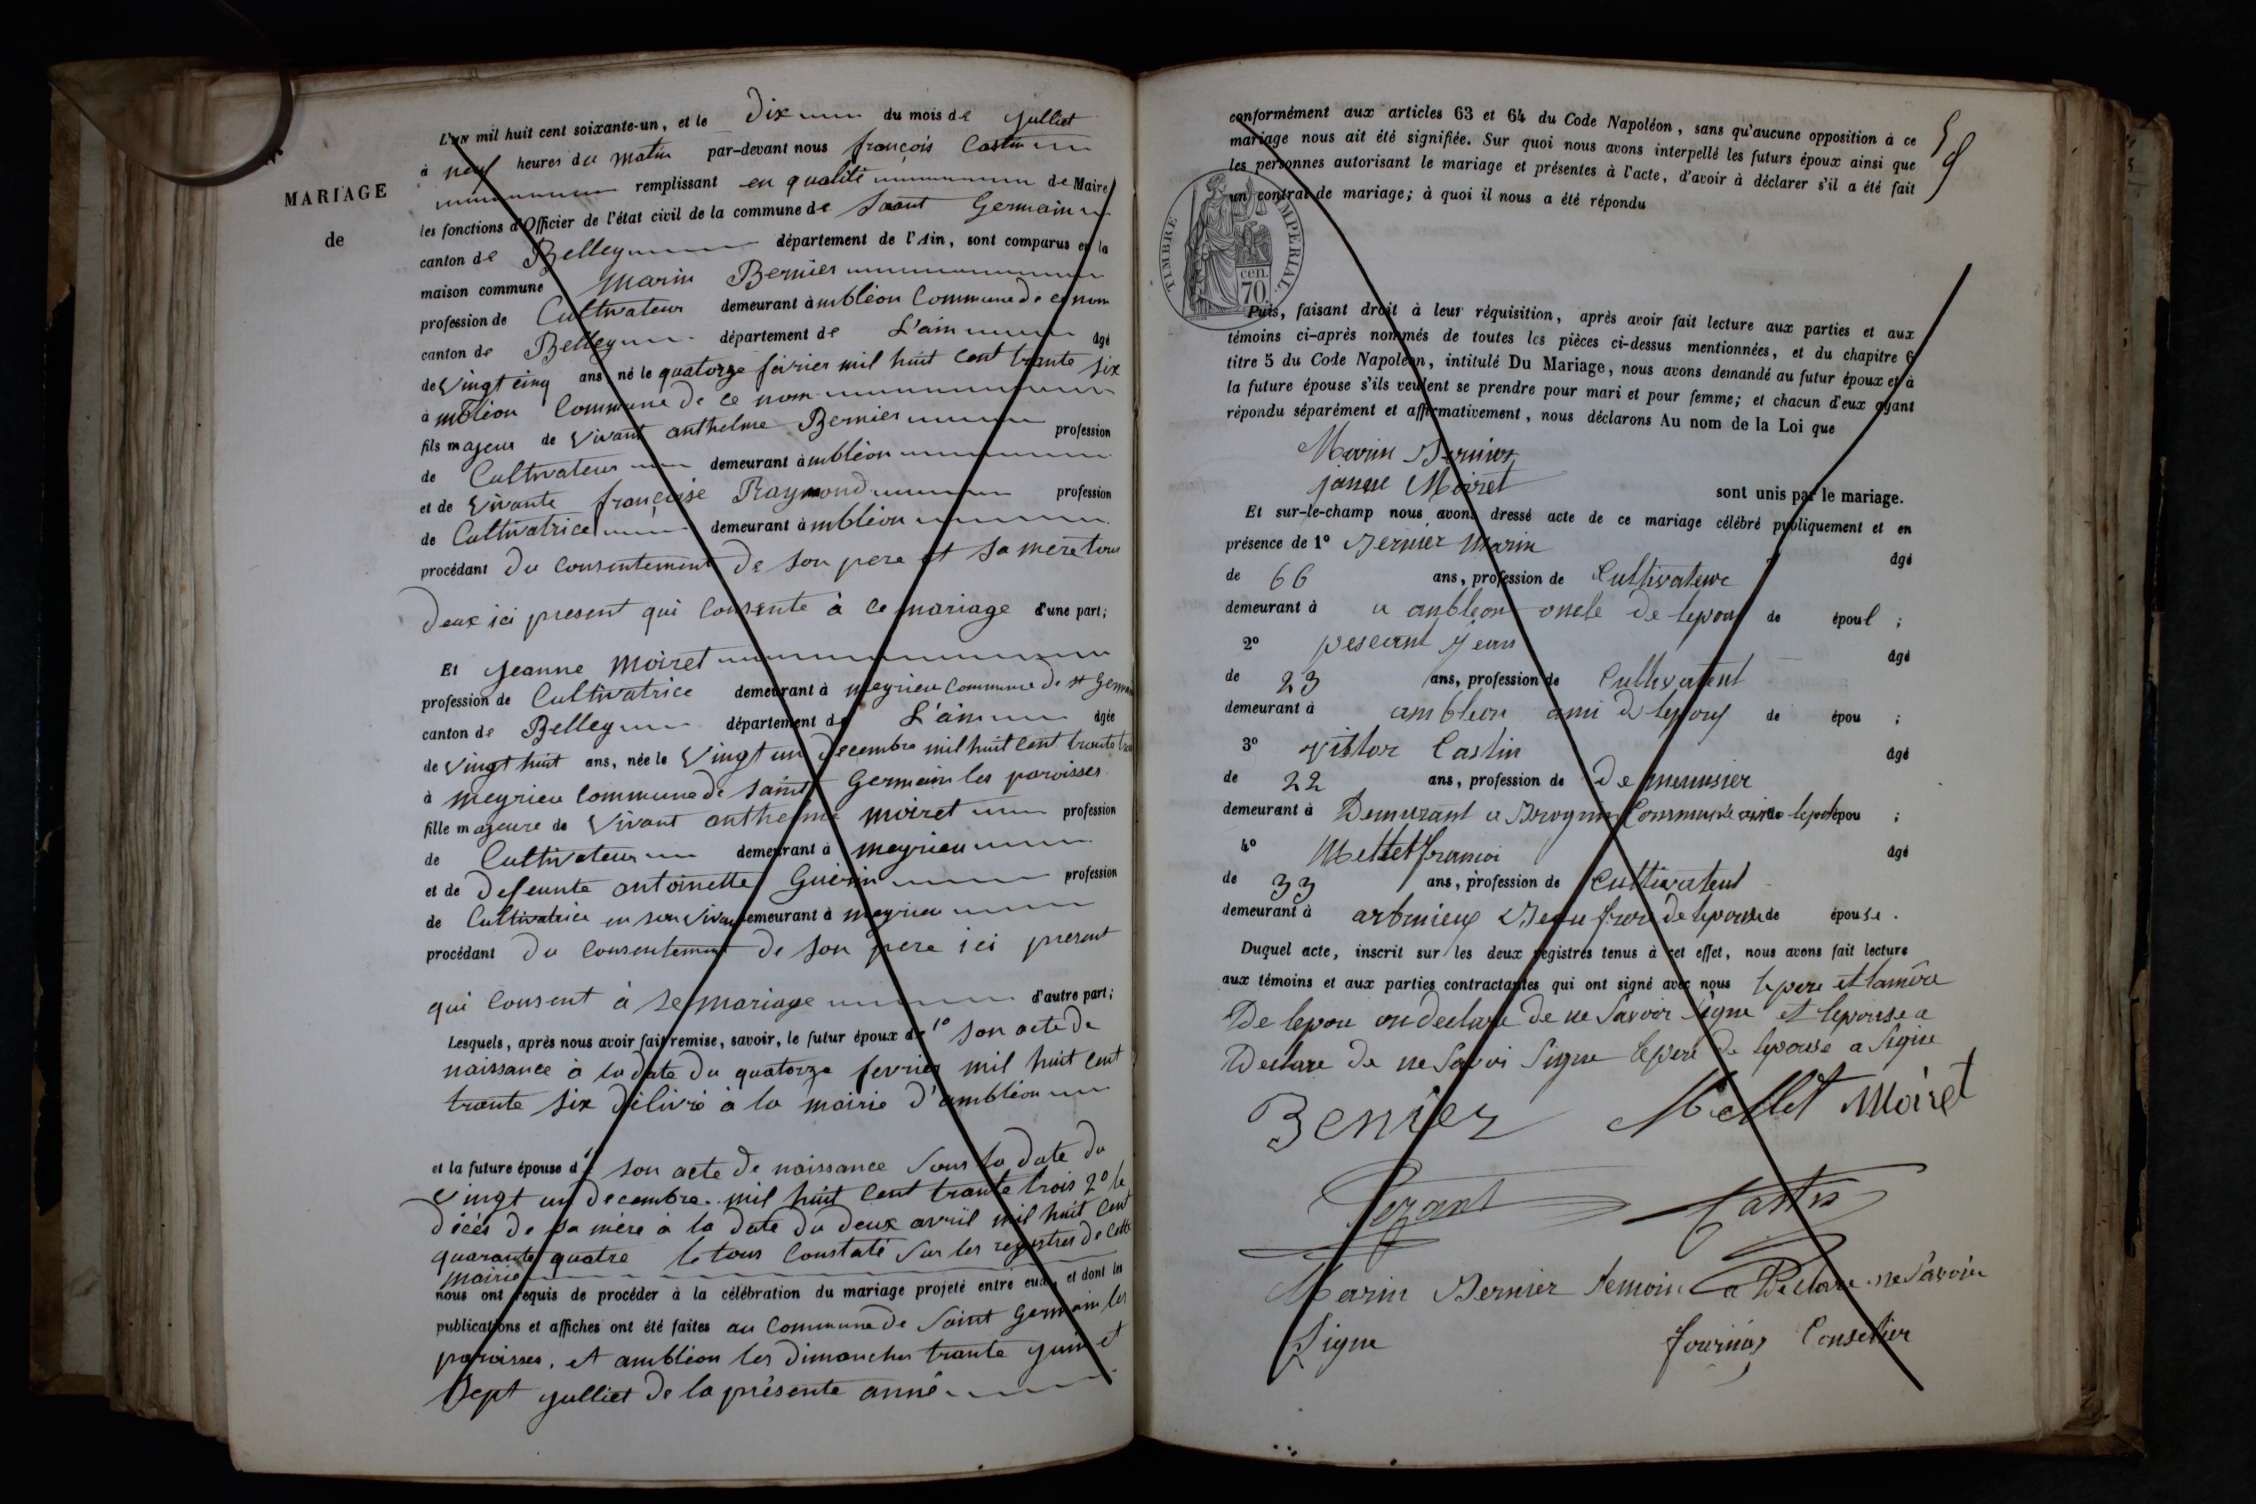 MARIAGE
de
L'an mil huit cent soixante-un, et le Dix du mois de Julliet
à neuf heures du matin par-devant nous françois Castin
remplissant en qualité de Maire
les fonctions d'Officier de l'état civil de la commune de Saint Germain
canton de Belley département de l'Ain, sont comparus en la
maison commune Marin Bernier
profession de Cultivateur demeurant à ambléon Commune de ce nom
canton de Belley département de L'ain âgé
de Vingt cinq ans, né le quatorze février mil huit cent trante six
à ambléon Commune de ce nom
fils majeur de Vivant anthelme Bernier profession
de Cultivateur demeurant à ambléon
et de Vivante françoise Raymond profession
de Cultivatrice demeurant à ambléon
procédant du consentement de son pere et sa mère tous
deux ici present qui consente à ce mariage d'une part;
Et Jeanne Moiret
profession de Cultivatrice demeurant à meyrieu commune de st Germain
canton de Belley département de L'ain âgée
de Vingt huit ans, née le Vingt un decembre mil huit cent trante trois
à meyrieu commune de saint Germain les paroisses
fille majeure de Vivant anthelme moiret profession
de Cultivateur demeurant à meyrieu
et de defeunte antoinette Guerin profession
de Cultivatrice en son vivant demeurant à meyrieu
procédant du consentement de son pere ici present
qui consent à se mariage d'autre part;
Lesquels, après nous avoir fait remise, savoir, le futur époux de 1º son acte de
naissance à la date du quatorze fevrier mil huit cent
trante six délivré à la mairie d'ambléon
et la future épouse d 1º son acte de naissance sous la date du
vingt un decembre mil huit cent trante trois 2º le
décès de sa mère à la date du deux avril mil huit cent
quarante quatre le tous constaté sur les registres de cette
mairie
nous ont requis de procéder à la célébration du mariage projeté entre eux, et dont les
publications et affiches ont été faites au commune de Saint Germain les
paroisses, et ambléon les dimanches trante juin et
Sept julliet de la présente anné
59
conformément aux articles 63 et 64 du Code Napoléon, sans qu'aucune opposition à ce
mariage nous ait été signifiée. Sur quoi nous avons interpellé les futurs époux ainsi que
les personnes autorisant le mariage et présentes à l'acte, d'avoir à déclarer s'il a été fait
un contrat de mariage; à quoi il nous a été répondu
TIMBRE IMPERIAL
70 cen.
Puis, faisant droit à leur réquisition, après avoir fait lecture aux parties et aux
témoins ci-après nommés de toutes les pièces ci-dessus mentionnées, et du chapitre 6
titre 5 du Code Napoléon, intitulé Du Mariage, nous avons demandé au futur époux et à
la future épouse s'ils veulent se prendre pour mari et pour femme; et chacun d'eux ayant
répondu séparément et affirmativement, nous déclarons Au nom de la Loi que
Marin Bernier
janne Moiret sont unis par le mariage.
Et sur-le-champ nous avons dressé acte de ce mariage célébré publiquement et en
présence de 1º Bernier Marin âgé
de 66 ans, profession de Cultivateur
demeurant à a anbleon oncle de lepoux de époul ;
2º Jean âgé
de 23 ans, profession de Cultivateut
demeurant à ambleon ami de lepoux de épou ;
3º vittor Castin âgé
de 22 ans, profession de De meunsier
demeurant à Demurant a Brognin Commune épou ;
4º Mettet francoi âgé
de 33 ans, profession de Cultivateut
demeurant à arbmieux Beau frere de lepouse de épouse.
Duquel acte, inscrit sur les deux registres tenus à cet effet, nous avons fait lecture
aux témoins et aux parties contractantes qui ont signé avec nous le pere et la mére
De lepou on declare de ne Savoir signe et lepouse a
Declare de ne Savoi Signe lepere de lepouse a Signe
Bernier Mettet Moiret
Pezant Castin
Marin Bernier temoin a Declare ne Savoir
Signe
fournas Conselier